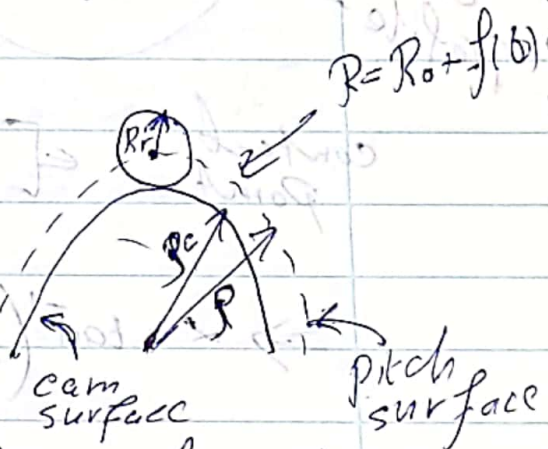 R = R₀ + f(θ)
Rr
ρc
ρ
cam
surface
pitch
surface